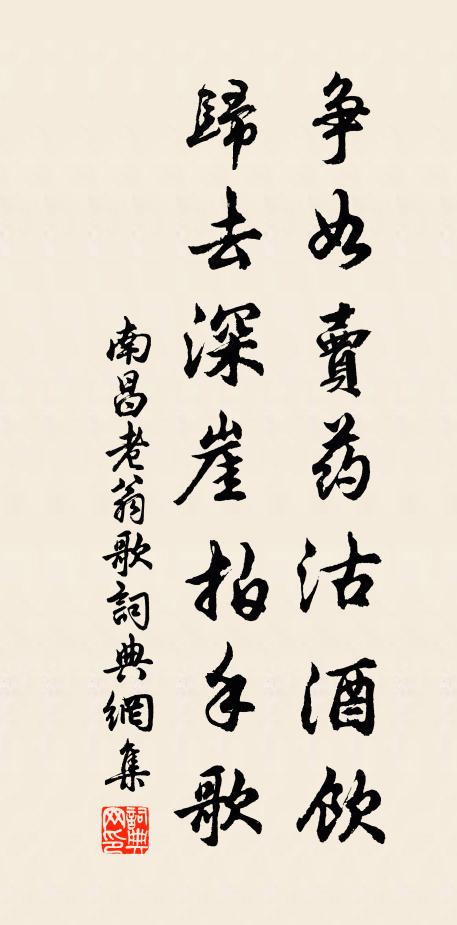 争如賣药沽酒飲
歸去深崖拍手歌
南昌老翁歌詞典網集
詞典網印